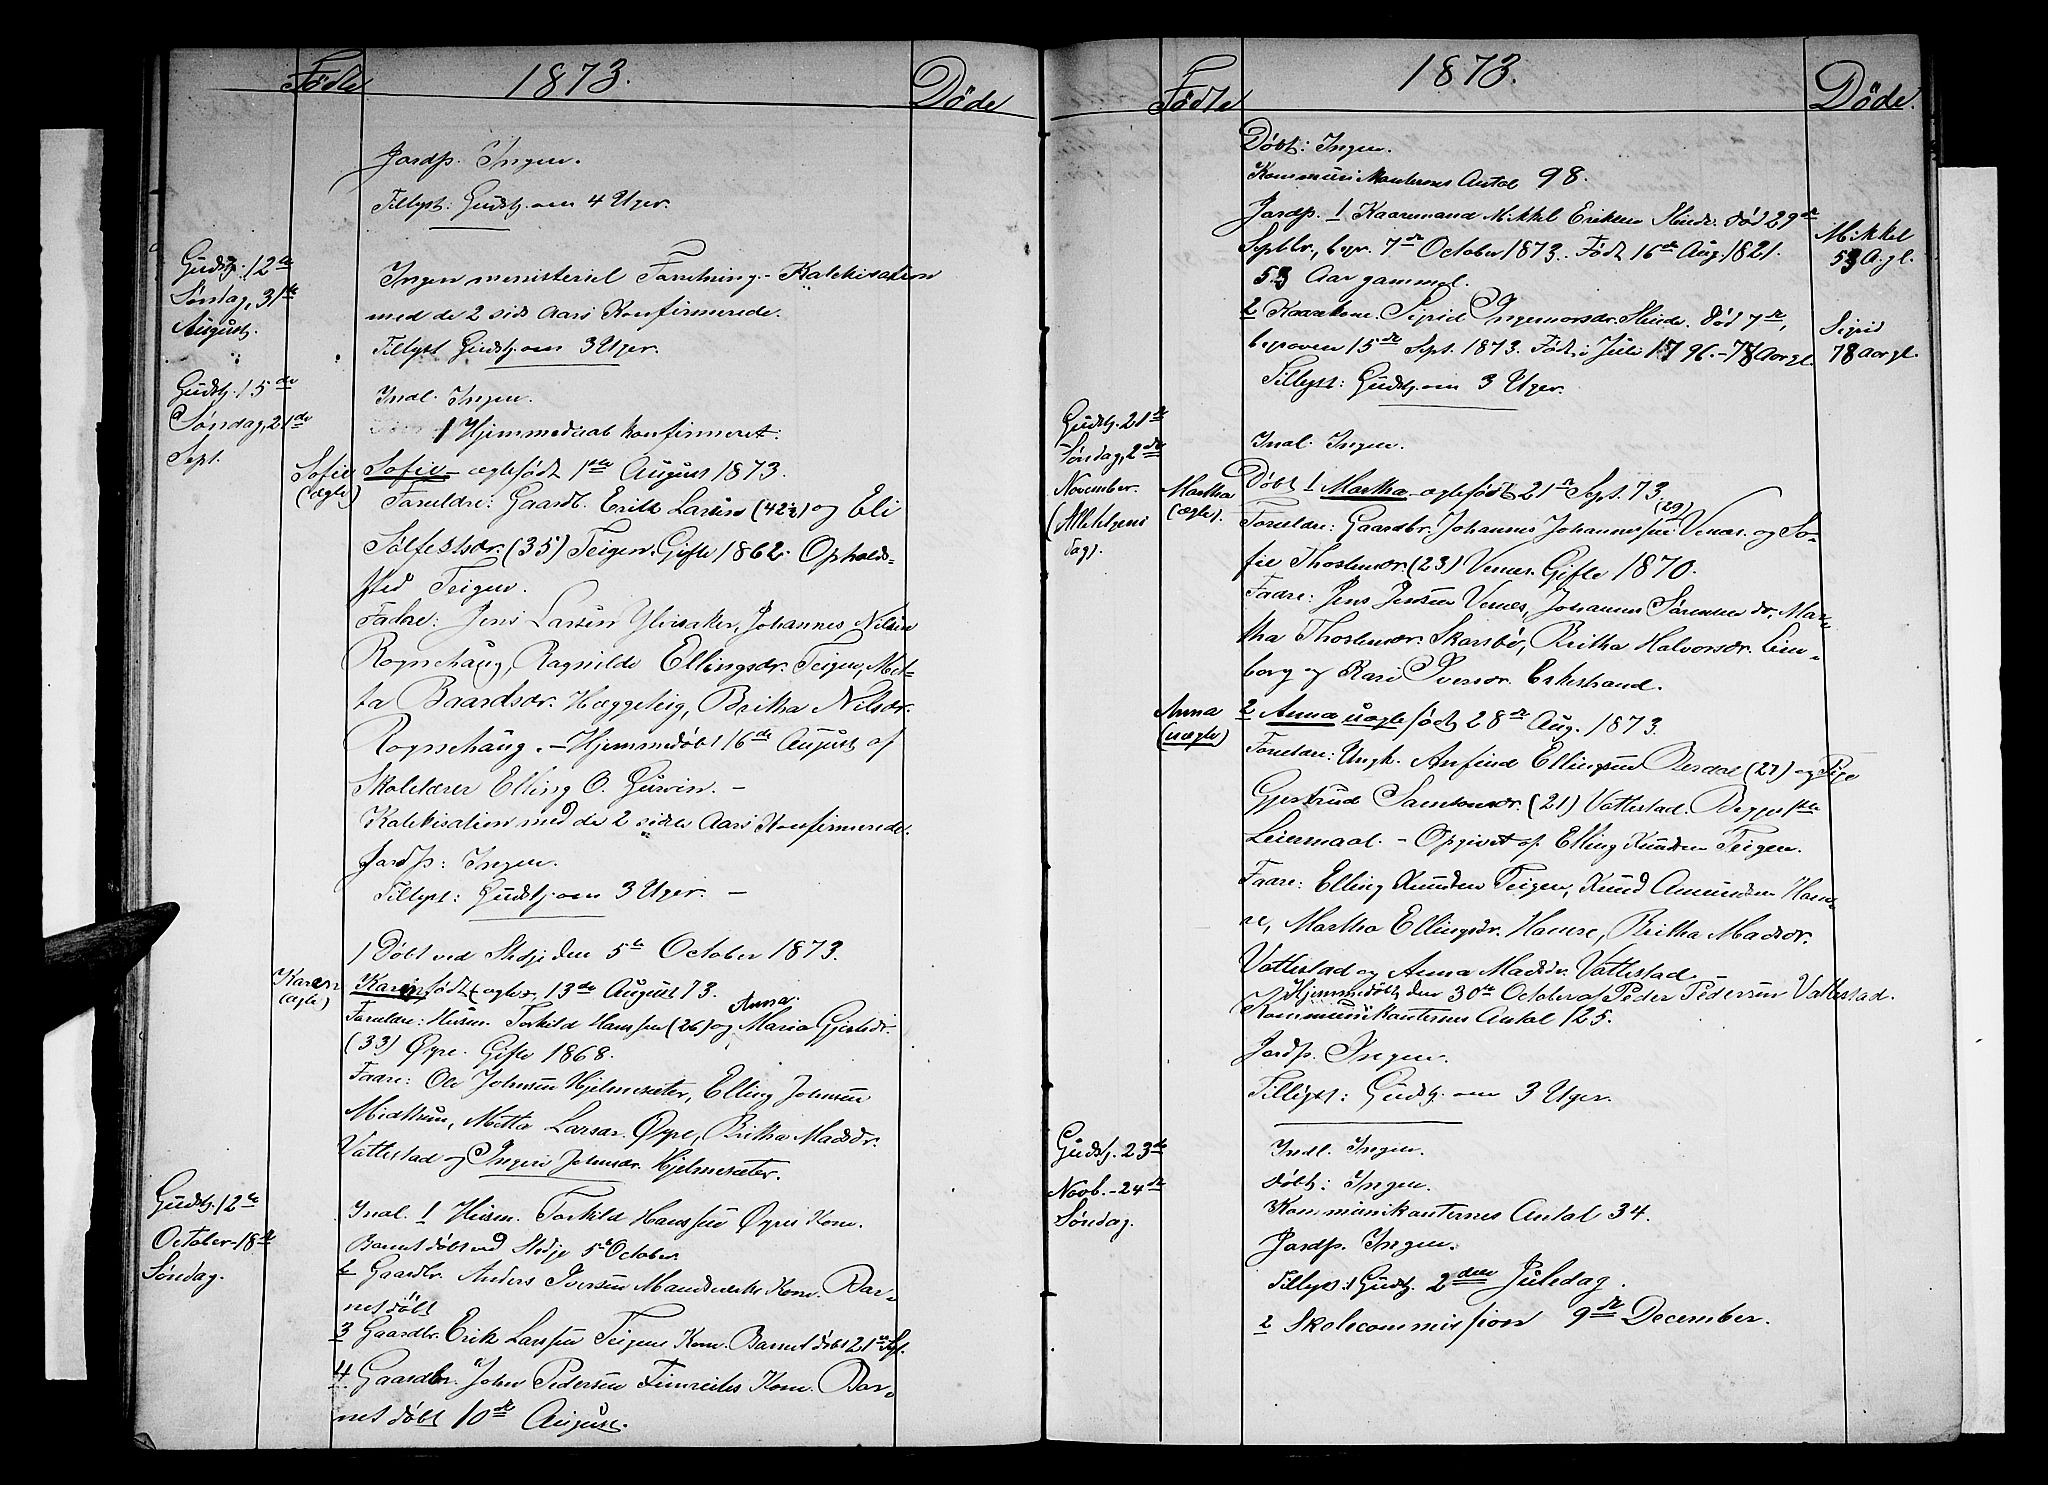 Fødte
1873.
Døde
Jordp. Ingen.
Tillyst: Gudstj. om 4 Uger.
Gudstj. 12te
Søndag, 31te
August.
Ingen ministeriel Forretning. - Katekisation
med de 2 sidste Aars Konfirmerede.
Tillyst Gudstj. om 3 Uger.
Gudstj. 15de
Søndag, 21de
Sept.
Indl. Ingen.
1 Hjemmedaab konfirmeret:
Sofie
(ægte)
Sofie - ægte født 1ste August 1873.
Forældre: Gaardb. Erik Larsen (42½) og Eli
Sølfestsdr. (35) Teigen. Gifte 1862. Opholds-
sted Teigen.
Faddre: Jens Larsen Ylvisaker, Johannes Nilsen
Rognehaug, Ragnilde Ellingsdr. Teigen, Met-
ta Baardsdr. Hæggeteig, Britha Nilsdr.
Rognehaug. - Hjemmedøbt 16de August af
Skolelærer Elling O. Gurvin. -
Katekisation med de 2 sidste Aars Konfirmerede.
Jordp: Ingen.
Tillyst: Gudstj. om 3 Uger. -
1 Døbt ved Stedje den 5te October 1873.
Karen
(ægte)
Karen født (ægte), 13de August 73.
Forældre: Husm. Torkild Hanssen (26) og Anna Maria Gjertsdr.
(33) Øyre. Gifte 1868.
Faddre: Ole Johnsen Hjelmeseter, Elling Johnsen
Midttun, Metta Larsdr. Øyre, Britha Madsdr.
Vattestad og Ingeri Johnsdr. Hjelmeseter.
Gudstj. 12te
October - 18de
Søndag.
Indl. 1 Husm. Torkild Hanssen Øyres Kone.
Barnet døbt ved Stedje 5te October
2 Gaardbr. Anders Iversen Kone. Bar-
net døbt
3 Gaardbr. Erik Larssen Teigens Kone. Barnet døbt 21de Sept.
4 Gaardbr. John Pedersen Fimreites Kone. Bar-
net døbt 10de August.
Fødte
1873.
Døde.
Døbt: Ingen.
Kommunikanternes Antal 98.
Jordp. 1 Kaaremand Mikkel Eriksen Slinde. død 29de
Septbr., begr. 7de October 1873. Født 16de Aug. 1821.
53 Aar gammel.
Mikkel
53 A. gl.
2 Kaarekone. Sigrid Ingemorsdr. Slinde. Død 7de,
begraven 15de Sept. 1873. Født i Juli 1796. - 78 Aar gl.
Sigrid
78 Aar gl.
Tillyst: Gudstj. om 3 Uger.
Gudstj. 21de
Søndag, 2den
November.
(Allehelgens
dag).
Indl. Ingen.
Martha
(ægte).
Døbt 1 Martha - ægte født 21de Sept. 73.
Forældre: Gaardbr. Johannes Johannessen (29) Venæs. og So-
fie Thorlensdr. (23) Venæs. Gifte 1870.
Faddre: Jens Jensen Venæs, Johannes Sørensen do, Mar-
tha Thorlensdr. Skarsbø, Britha Halvorsdr. Lun-
borg og Kari Iversdr. Eskestrand.
Anna
(uægte)
2 Anna uægte født 28de Aug. 1873.
Forældre: Ungk. Anfind Ellingsen Aardal (27) og Pige
Gjertrud Samsonsdr. (21) Vattestad. Begges 1ste
Leiermaal. - Opgivet af Elling Knudsen Teigen.
Faddre: Elling Knudsen Teigen, Knud Amundsen Ham-
re, Martha Ellingsdr. Hamre, Britha Madsdr.
Vattestad og Anna Madsdr. Vattestad
Hjemmedøbt den 30te October af Peder Pedersen Vattestad.
Kommunikanternes Antal 125.
Jordp. Ingen.
Tillyst: Gudstj. om 3 Uger.
Gudstj. 23de
Novb. - 24de
Søndag.
Indl. Ingen.
Døbt: Ingen.
Kommunikanternes Antal 34.
Jordp. Ingen.
Tillyst: 1 Gudstj. 2den Juledag.
2 Skolecommission 9de December.